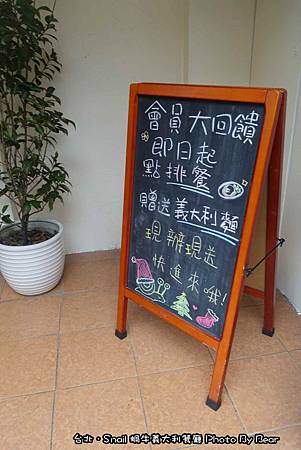 會員大回饋
即日起
點排餐
贈送義大利麵
現辦現送
快進來哦!
台北。Snail 蝸牛義大利餐廳 [Photo By Bear